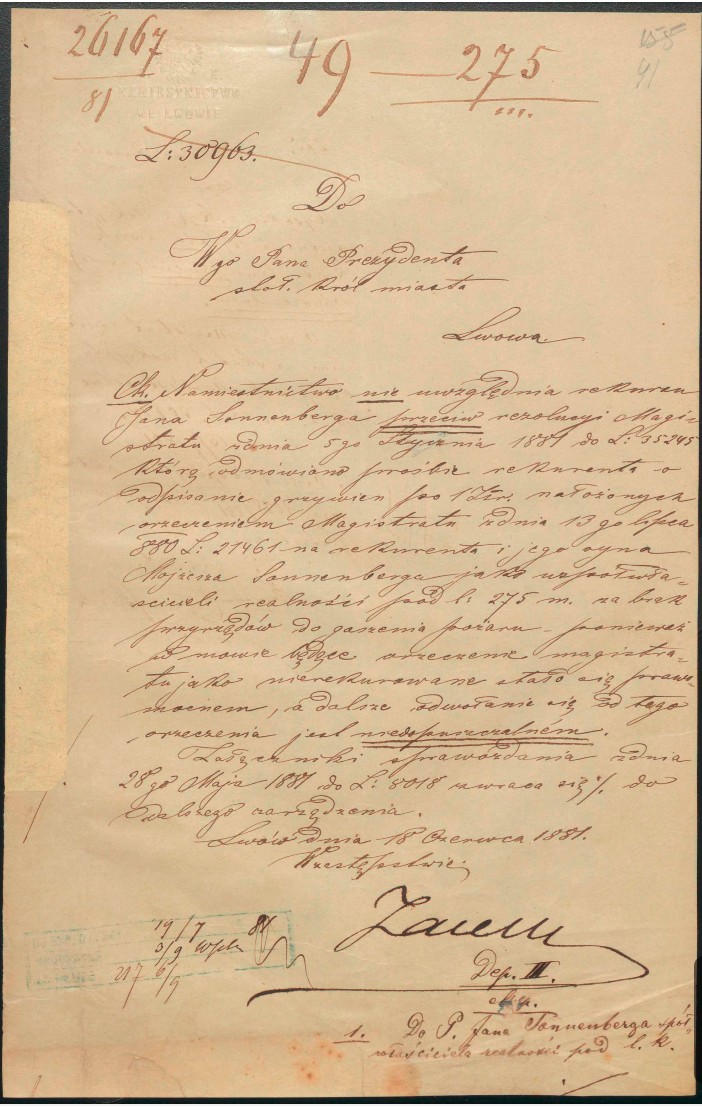 26167
81
49 — 275
III.
91
C.K. NAMIESTNICTWO
WE LWOWIE
L: 30963.
Do
Wgo Pana Prezydenta
stoł. król miasta
Lwowa.
Ck. Namiestnictwo nie uwzględnia rekursu
Jana Sonnenberga przeciw rezolucyi Magi-
stratu zdnia 5go Stycznia 1881 do L: 35245
którą odmówiono prośbie rekurenta o
odpisanie grzywien po 1 Złr. nałożonych
orzeczeniem Magistratu zdnia 13go lipca
880 L: 21461 na rekurenta i jego syna
Mojżesza Sonnenberga jako współwła-
ścicieli realności pod l: 275 m. za brak
przyrządów do gaszenia pożaru - ponieważ
w mowie będące orzeczenie magistra-
tu jako nierekurowane stało się prawo-
mocnem, a dalsze odwołanie się od tego
orzeczenia jest niedopuszczalném.
Załączniki sprawozdania zdnia
28go Maja 1881 do L: 8018 zwraca się ./. do
dalszego zarządzenia.
Lwów dnia 18 Czerwca 1881.
W zastępstwie:
19/7 81
3/9
217 6/9
Dep. III.
eksp.
1. Do P. Jana Sonnenberga spół-
właściciela realności pod l. k.